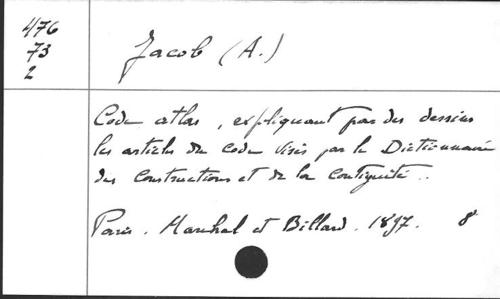 476
73
2
Jacob (A.)
Code atlas, expliquant par des dessins
les articles du code visés par le Dictionnaire
des Constructions et de la contiguité..
Paris. Marchal et Billard. 1897. 8